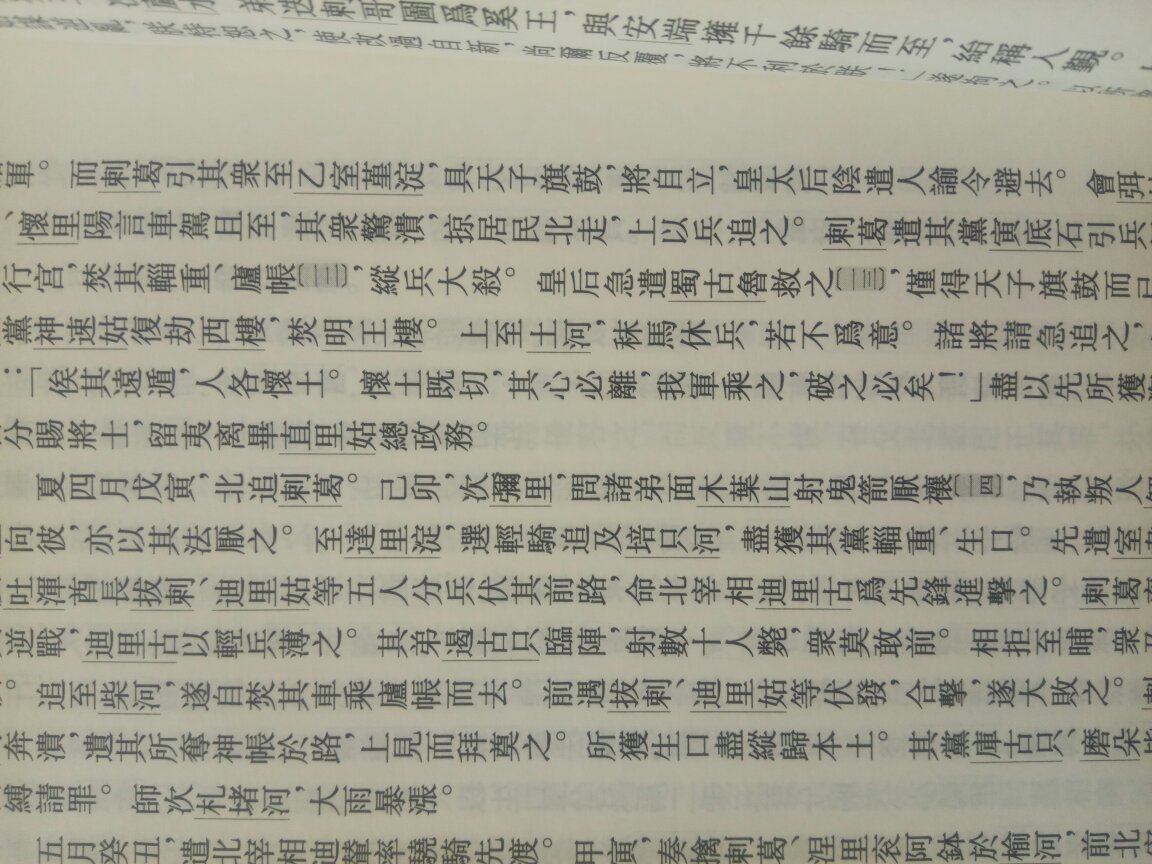 迭剌哥圖爲奚王,與安端擁千餘騎而至,紿稱入覲。
之,使改過自新,尚爾反覆,將不利於朕!」
軍。而剌葛引其衆至乙室堇淀,具天子旗鼓,將自立,皇太后陰遣人諭令避去。會弭
、懷里陽言車駕且至,其衆驚潰,掠居民北走,上以兵追之。剌葛遣其黨寅底石引兵
行宮,焚其輜重、廬帳,縱兵大殺。皇后急遣蜀古魯救之,僅得天子旗鼓而已
黨神速姑復劫西樓,焚明王樓。上至土河,秣馬休兵,若不爲意。諸將請急追之,
:「俟其遠遁,人各懷土。懷土既切,其心必離,我軍乘之,破之必矣!」盡以先所獲
分賜將士,留夷离畢直里姑總政務。
夏四月戊寅,北追剌葛。己卯,次彌里,問諸弟面木葉山射鬼箭厭禳,乃執叛人
向彼,亦以其法厭之。至達里淀,選輕騎追及培只河,盡獲其黨輜重、生口。先遣室
吐渾酋長拔剌、迪里姑等五人分兵伏其前路,命北宰相迪里古爲先鋒進擊之。剌葛
逆戰,迪里古以輕兵薄之。其弟遏古只臨陣,射數十人斃,衆莫敢前。相拒至晡,衆
。追至柴河,遂自焚其車乘廬帳而去。前遇拔剌、迪里姑等伏發,合擊,遂大敗之。
奔潰,遺其所奪神帳於路,上見而拜奠之。所獲生口盡縱歸本土。其黨庫古只、磨朵
縛請罪。師次札堵河,大雨暴漲。
五月癸丑,遣北宰相迪輦率驍騎先渡。甲寅,奏擒剌葛、涅里衮阿鉢於榆河,前北